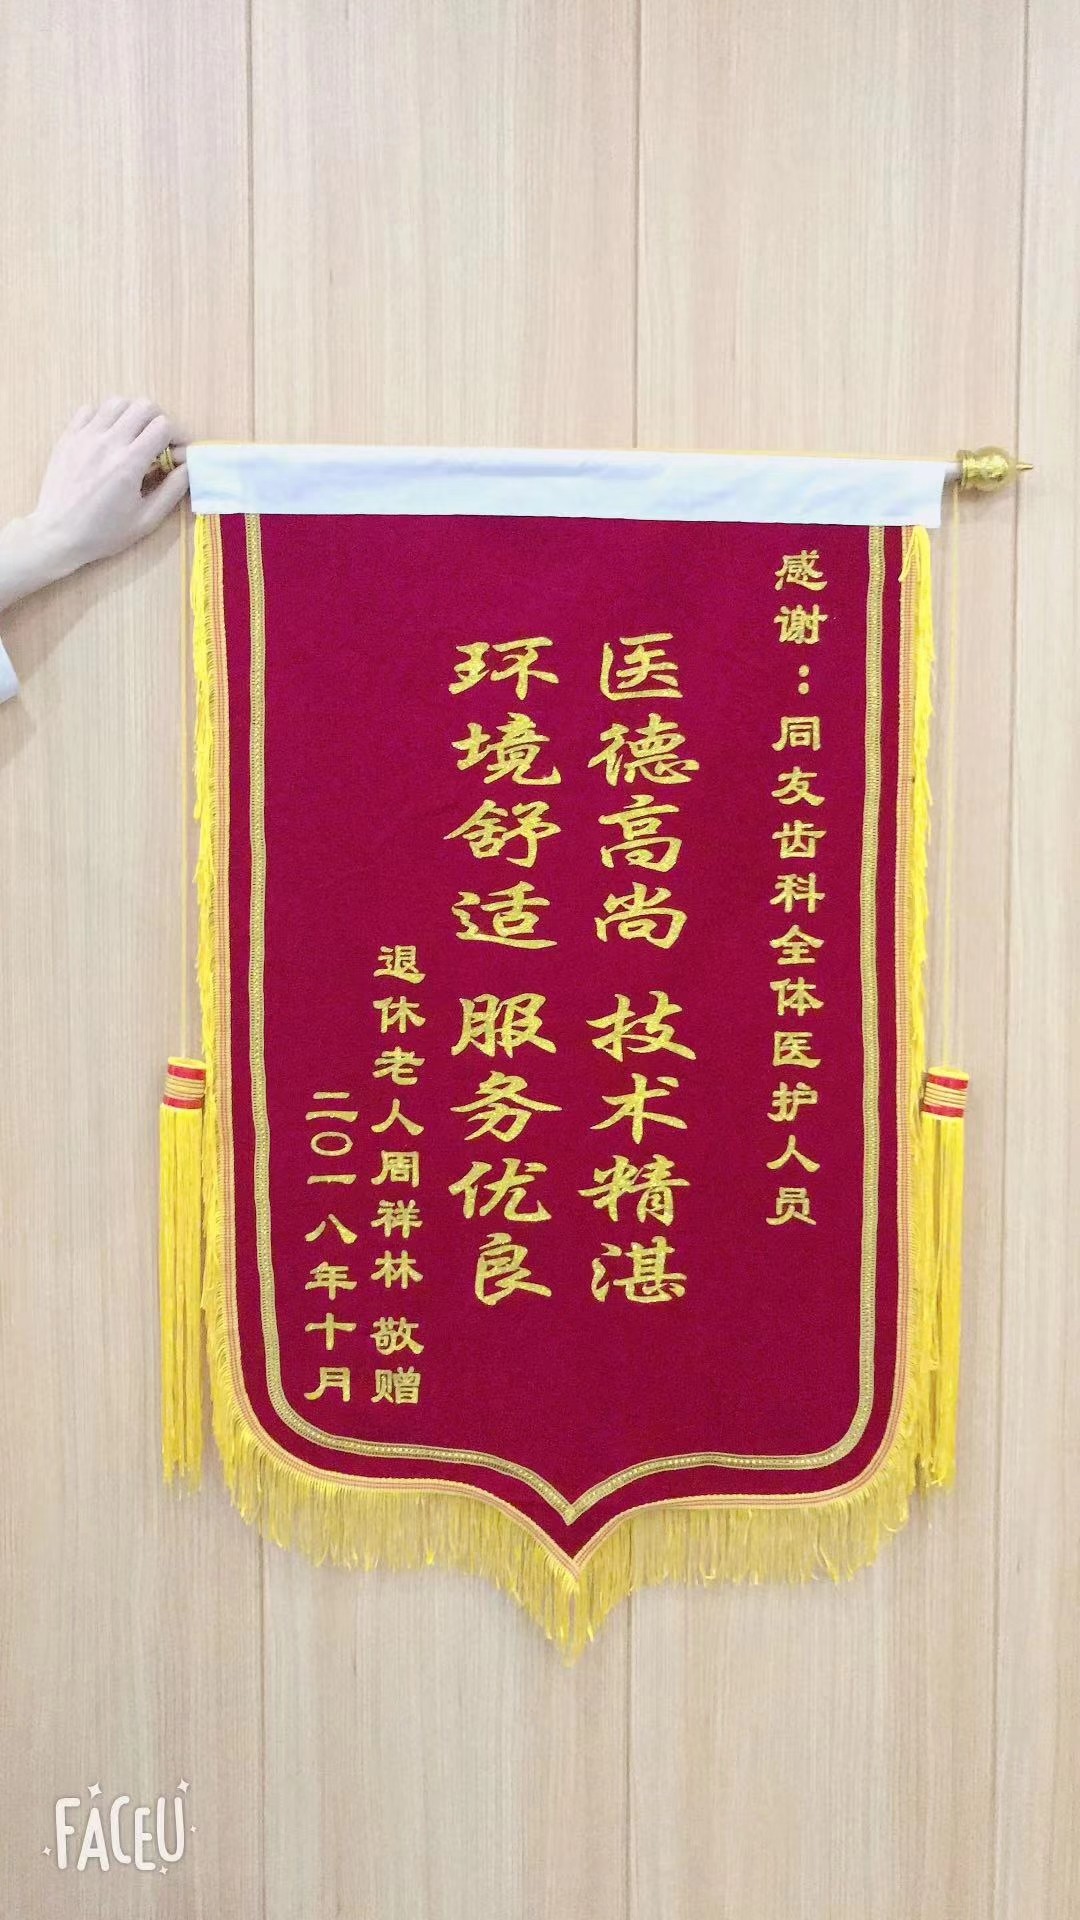 感谢：同友齿科全体医护人员
医德高尚 技术精湛
环境舒适 服务优良
退休老人周祥林 敬赠
二〇一八年十月
FACEU